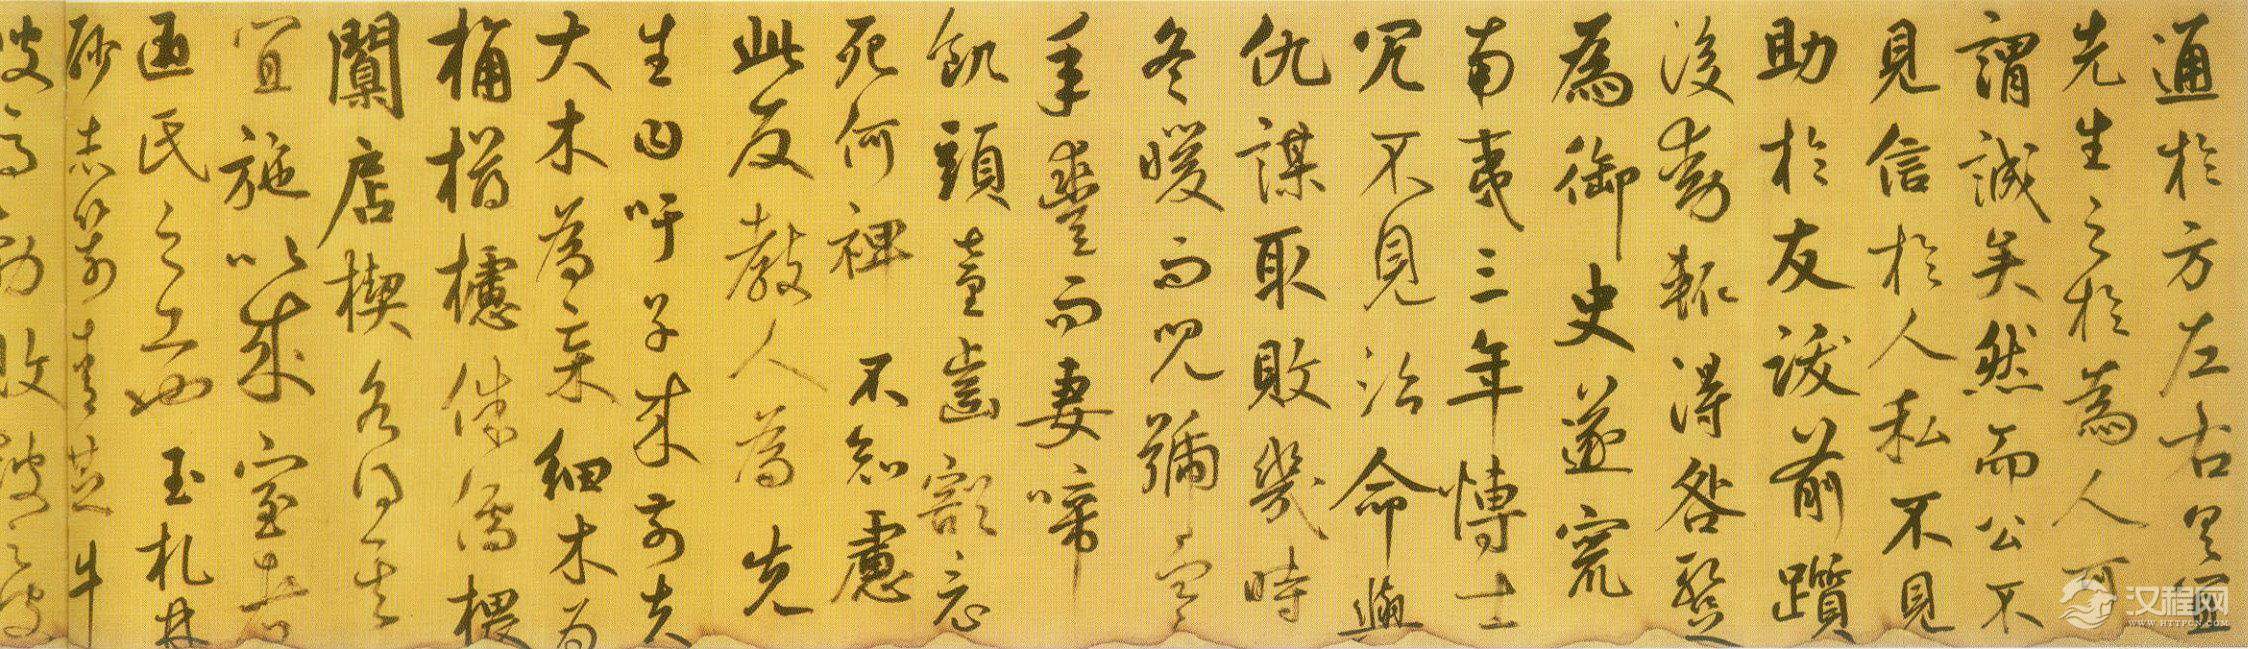 通於方左右具宜
先生之於為人可
謂誠矣然而公不
見信於人私不見
助於友跋前躓
後動輒得咎暫
為御史遂竄
南夷三年博士
冗不見治命與
仇謀取敗幾時
冬暖而兒號寒
年豐而妻啼
飢頭童齒豁竟
死何裨不知慮
此反教人為先
生曰吁子來前夫
大木為杗細木為
桷欂櫨侏儒椳
闑扂楔各得其
宜施以成室者
匠氏之工也玉札丹
砂赤箭青芝牛
溲馬勃敗鼓之皮
汉程网
WWW.HTTPCN.COM